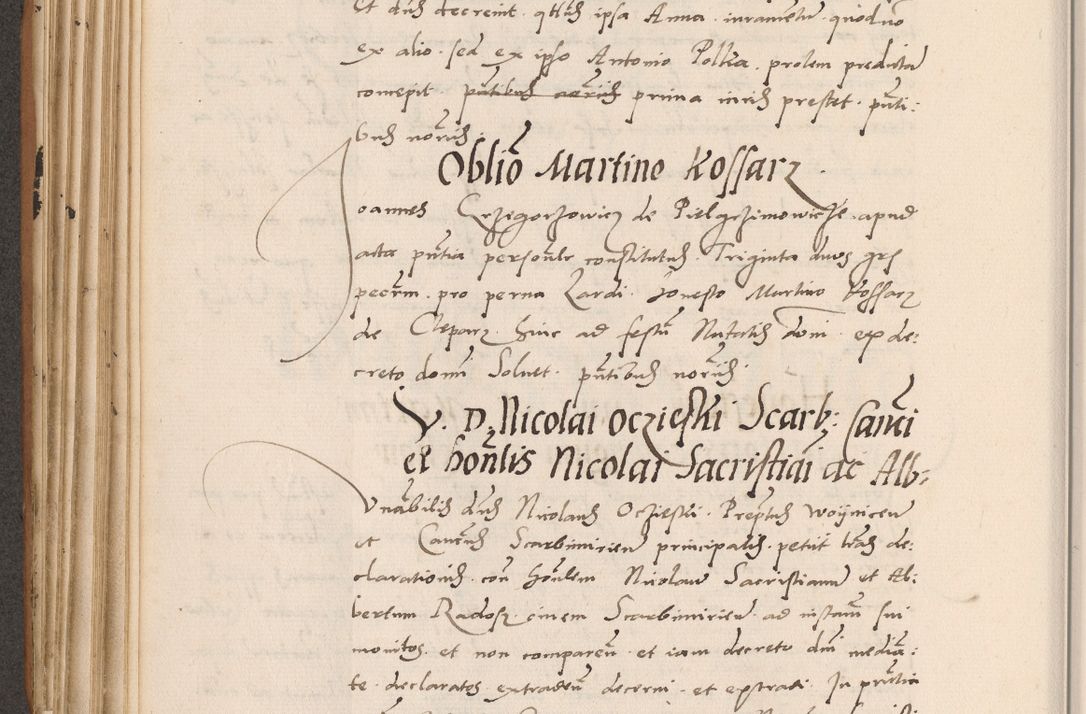 Et dns decreint. qtus ipsa Anna. iuramentu. quoduo
ex alio. sed ex ipso Antonio Polka. prolem predictā
concepit prima iuris prestet. pnti:
bus noriis.
Oblio Martino Kossarz.
Joannes Grzegorzowicz de Pielgrzimowicze. apud
acta pntia personlr constitutus. Triginta duos grs
pecum. pro perna Lardi. honesto Martino Kossarz
de Cleparz. hinc ad festu Natatis dom. ex de:
creto domi Soluet. pntibus noriis.
V. D. Nicolai Oczieski Scarb: Canci
et honlis Nicolai Sacristiai ac Alb:
Vnabilis dns Nicolaus Oczieski. Preptus Woijnicen
et Cancus Scarbimirien principalis. petiit lras de:
clarationis. con honlem Nicolaum Sacristianu et Al:
bertum Radosz. ciuem Scarbimirien. ad instam sui
monitos. et non comparen. et iam decreto dni media:
te. declaratos. extraden decerni. et extradi. In pntia